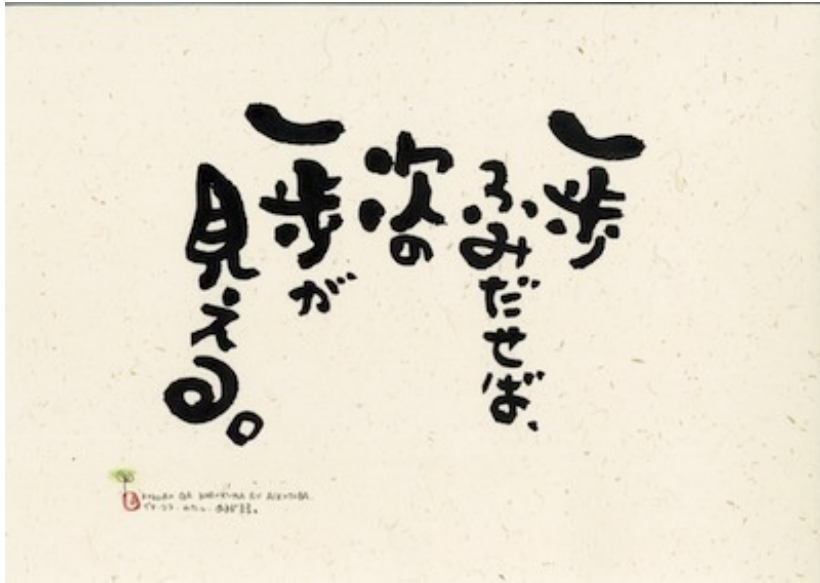 一歩
ふみだせば、
次の
一歩が
見える。